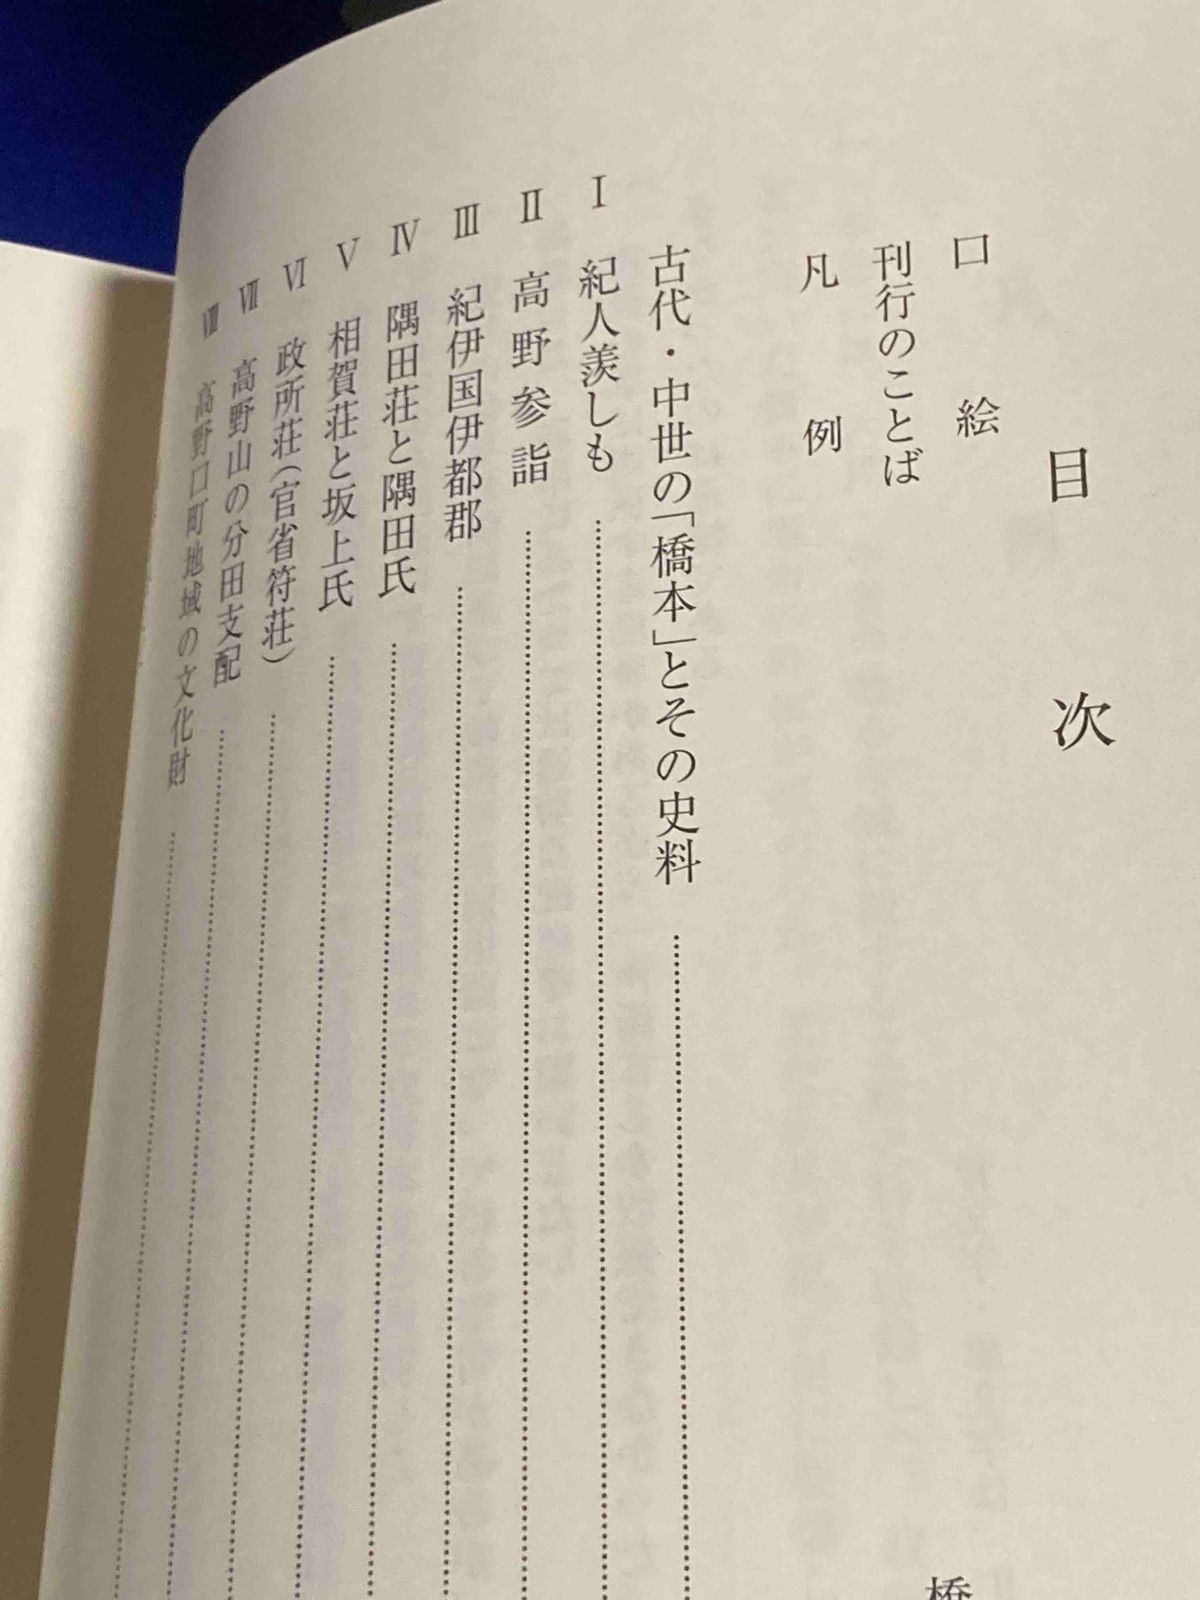 目次
口絵
橋
刊行のことば
凡例
古代・中世の「橋本」とその史料
Ⅰ 紀人羨しも
Ⅱ 高野参詣
Ⅲ 紀伊国伊都郡
Ⅳ 隅田荘と隅田氏
Ⅴ 相賀荘と坂上氏
Ⅵ 政所荘（官省符荘）
Ⅶ 高野山の分田支配
Ⅷ 高野口町地域の文化財